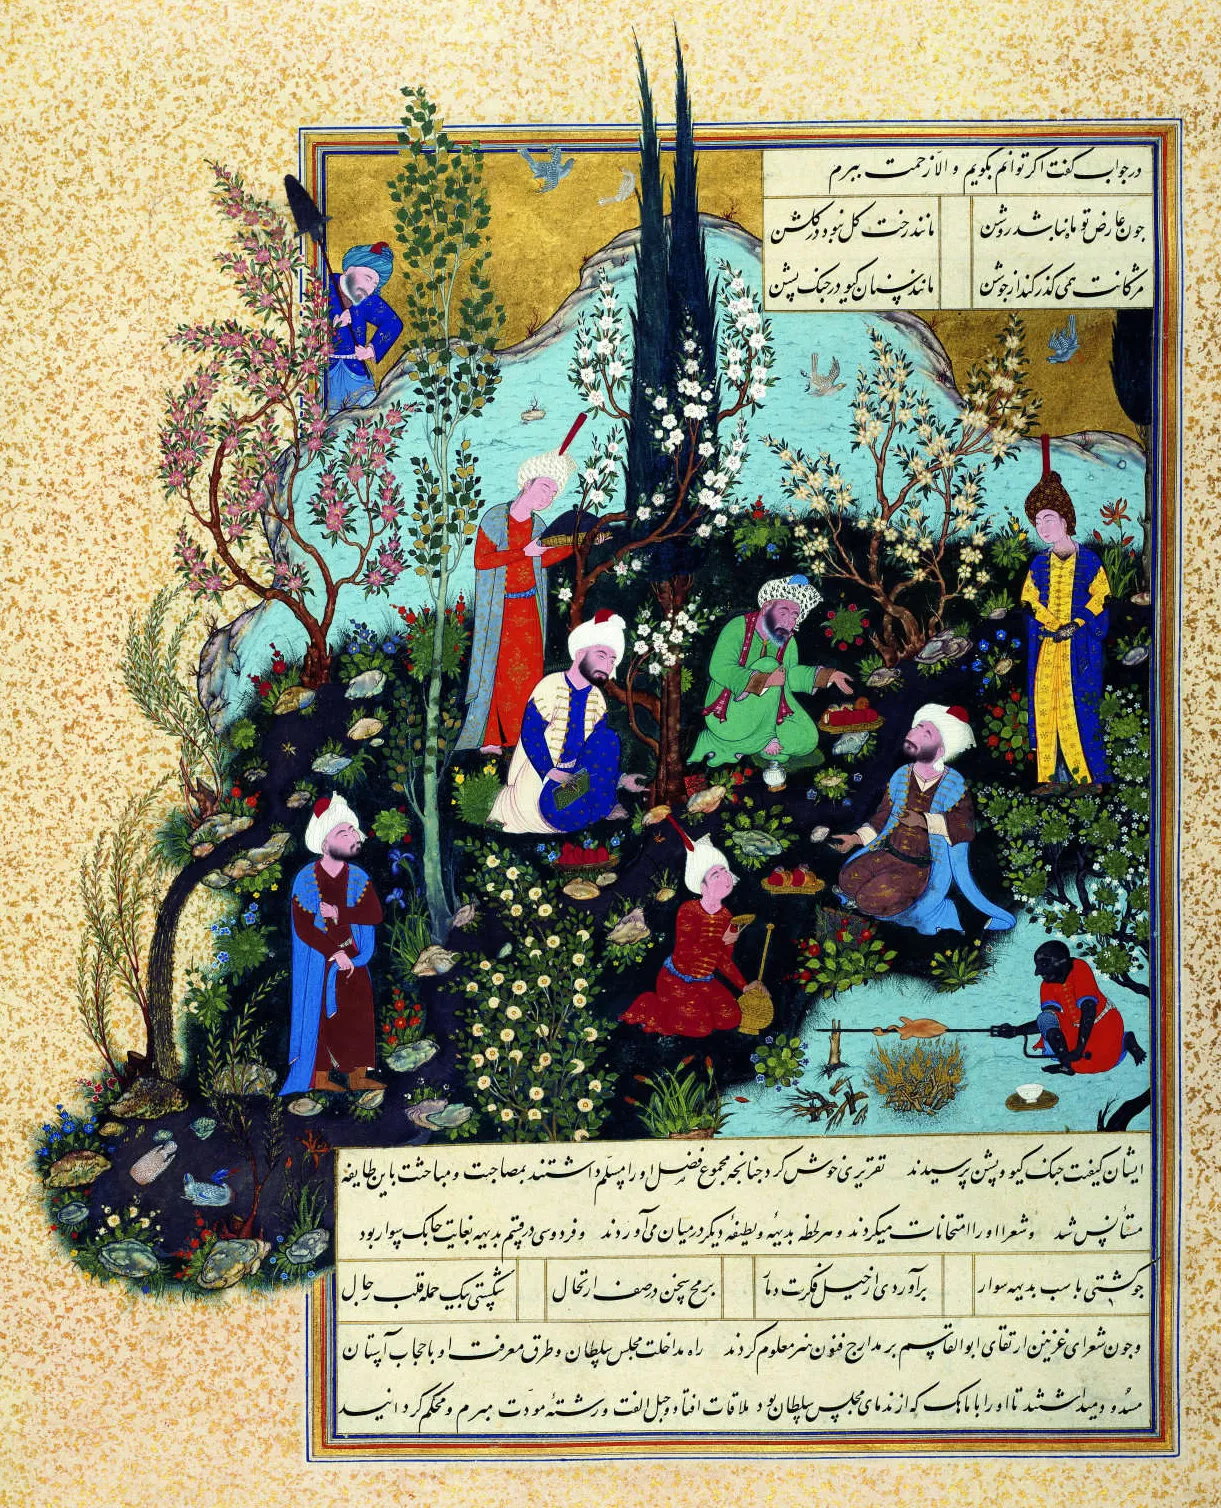 در جواب گفت اکر توانم بکویم و الا زحمت ببرم
جون عارض تو ماه نباشد روشن مانند رخت کل نبود در کلشن
مژکانت همی کذر کند از جوشن مانند سنان کیو در جنک پشن
ایشان کیفیت جنک کیو و پشن پرسیدند تقریری خوش کرد جنانجه مجموع فضل او را مسلم داشتند بمصاحبت و مباحثت باین طایفه
مستأنس شد و شعرا او را امتحانات میکردند و هر لحظه بدیهه و لطیفهٔ دیکر در میان می آوردند و فردوسی در قسم بدیهه بغایت جابک سوار بود
جو کشتی باسب بدیهه سوار برآوردی از خیل فکرت دمار برمح سخن در صف ارتجال شکستی بیک حمله قلب رجال
و جون شعرای غزنین ارتقای ابوالقاسم بر مدارج فنون هنر معلوم کردند راه مداخلت مجلس سلطان و طرق معرفت او با حجاب آستان
مسدود میداشتند تا او را با ماهک که از ندمای مجلس سلطان بود ملاقات افتاد و حبل الفت و رشتهٔ مودت مبرم و محکم کردانید